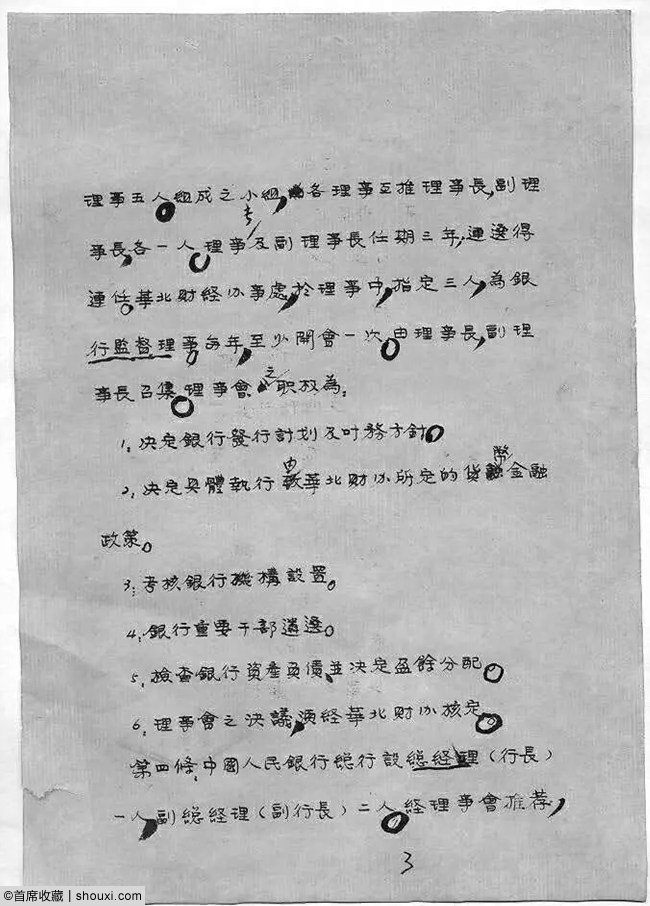 理事五人組成之小組,各理事互推理事長,副理
事長,各一人。理事長及副理事長任期三年,連選得
連任。華北财経办事處,於理事中,指定三人,為銀
行監督理事。每年,至少開會一次。由理事長,副理
事長召集。理事會之职权為:
1. 决定銀行發行計划及业務方針。
2. 决定具體執行由華北财办所定的貨幣金融
政策。
3. 考核銀行機構設置。
4. 銀行重要干部遴選。
5. 檢查銀行資產負債、並决定盈餘分配。
6. 理事會之决議,須経華北财办核定。
第四條、中國人民銀行總行設總経理(行長)
一人,副總経理(副行長)二人。経理事會推荐,
3
©首席收藏 | shouxi.com